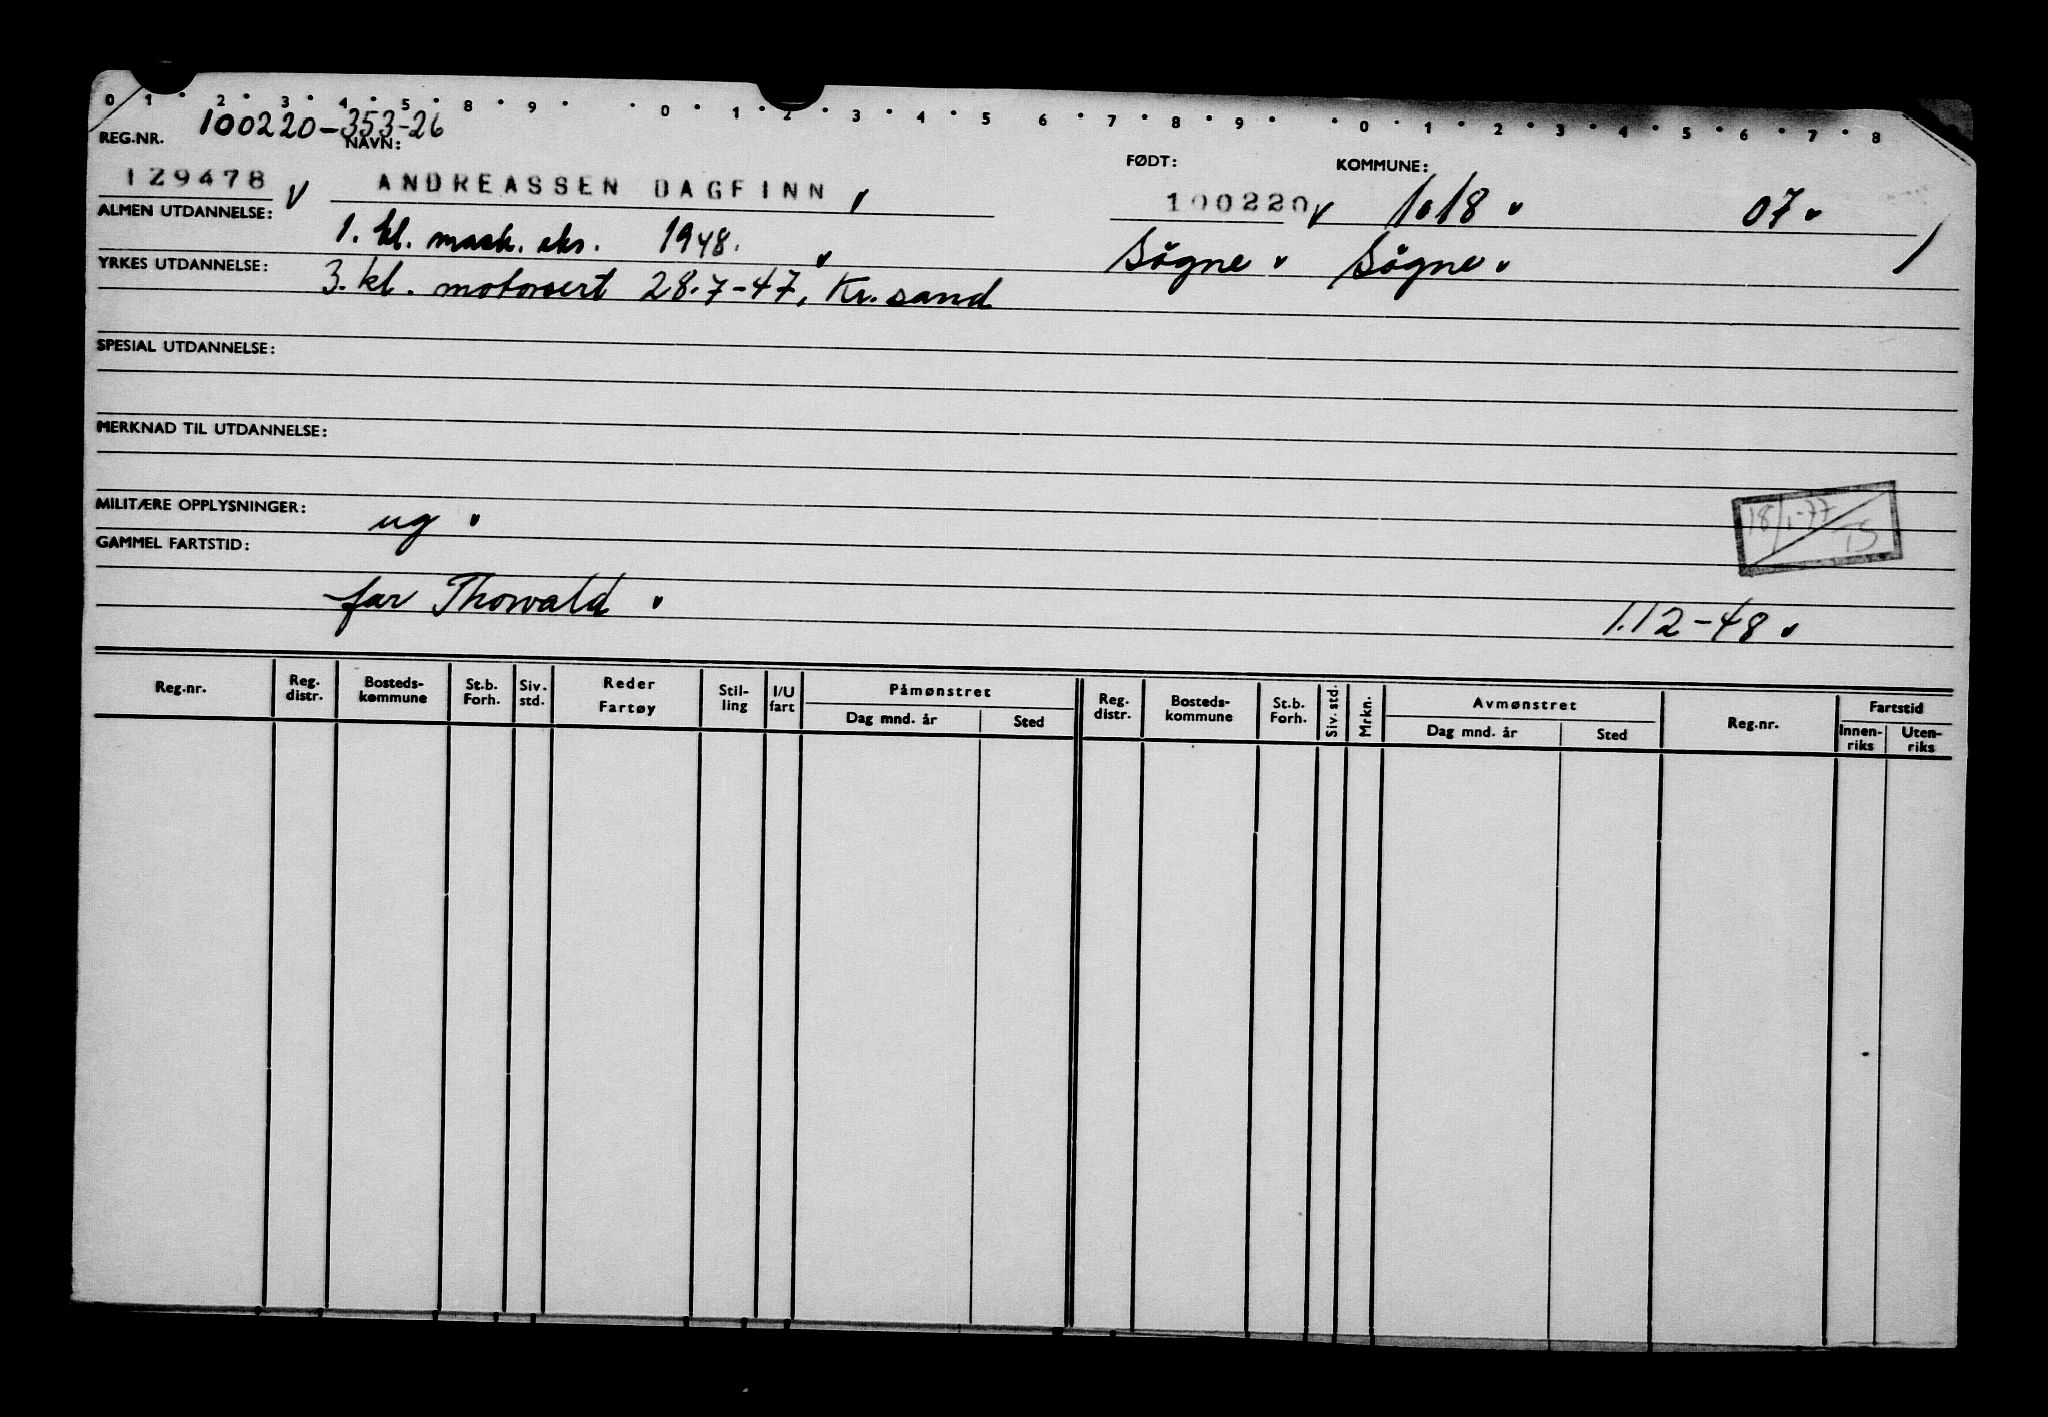 0 1 2 3 4 5 8 9 0 1 2 3 4 5 6 7 8 9 0 1 2 3 4 5 6 7 8
100220-353-26
REG.NR. NAVN: FØDT: KOMMUNE:
129478 ANDREASSEN DAGFINN 100220 1018 07
ALMEN UTDANNELSE: 1. kl. mask. eks. 1948. Søgne Søgne
YRKES UTDANNELSE: 3. kl. motorsert 28.7-47, Kr.sand
SPESIAL UTDANNELSE:
MERKNAD TIL UTDANNELSE:
MILITÆRE OPPLYSNINGER: ug
18/1-77
GAMMEL FARTSTID:
far Thorvald 1.12-48
Reg.nr. Reg. distr. Bosteds-kommune St.b. Forh. Siv. std. Reder Fartøy Stil-ling I/U fart Påmønstret Dag mnd. år Sted Reg. distr. Bosteds-kommune St.b. Forh. Siv. std. Mrkn. Avmønstret Dag mnd. år Sted Reg.nr. Fartstid Innen-riks Uten-riks